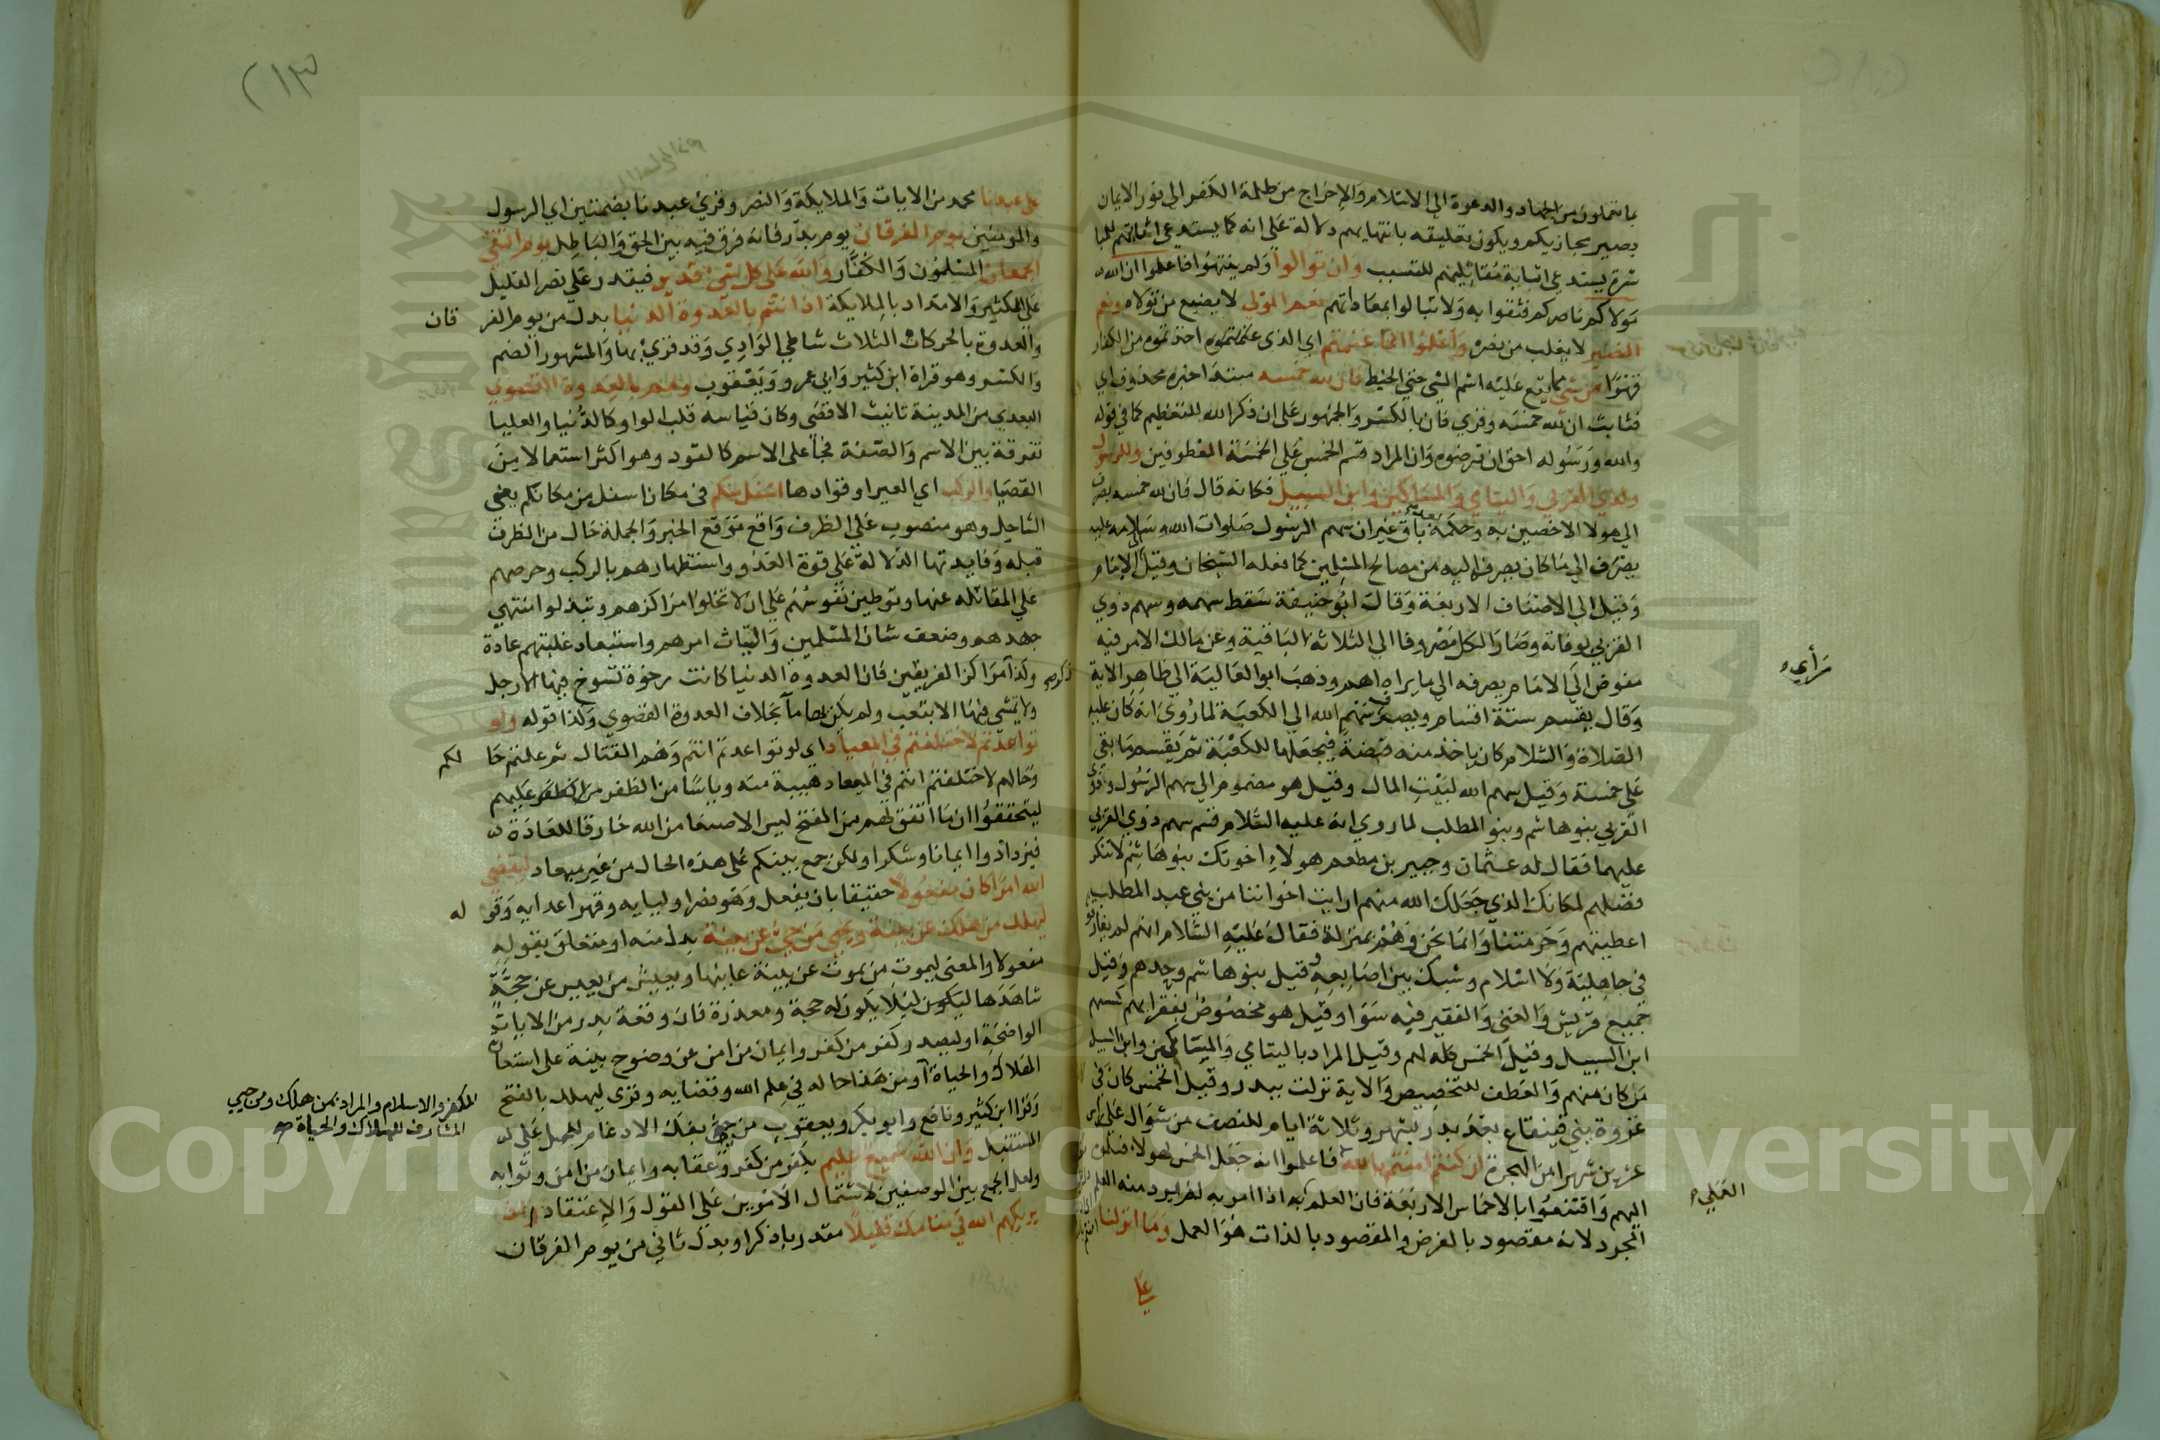 بما تعملون من الجهاد والدعوة الى الاسلام والاخراج من ظلمة الكفر الى نور الايمان
بصير يجازيكم ويكون تعليقه بانتهايهم دلالة على انه كما يستدعي اثابتهم للمبا
شرة يستدعي اثابة مقاتليهم للتسبب وان تولوا ولم ينتهوا فاعلموا ان الله
مولاكم ناصركم فثقوا به ولا تبالوا بمعاداتهم نعم المولى لا يضيع من تولاه ونعم
النصير لا يغلب من نصره واعلموا انما غنمتم اي الذي اخذتموه من الكفار
قهرا من شي مما يقع عليه اسم الشي حتى الخيط فان لله خمسه مبتدا خبره محذوف اي
فثابت ان لله خمسه وقري فان بالكسر والجمهور على ان ذكر الله للتعظيم كما في قوله
والله ورسوله احق ان ترضوه وان المراد قسم الخمس على الخمسة المعطوفين وللرسول
ولذي القربى واليتامى والمساكين وابن السبيل فكانه قال فان لله خمسه يصرف
الى هولا الاخصين به وحكمه باق غير ان سهم الرسول صلوات الله وسلامه عليه
يصرف الى ما كان يصرفه اليه من مصالح المسلمين كما فعله الشيخان وقيل الى الامام
وقيل الى الاصناف الاربعة وقال ابو حنيفة سقط سهمه وسهم ذوي
القربى بوفاته وصار الكل مصروفا الى الثلاثة الباقية وعن مالك الامر فيه
مفوض الى راي الامام يصرفه الى ما يراه اهم وذهب ابو العالية الى ظاهر الاية
وقال يقسم ستة اقسام ويصرف سهم الله الى الكعبة لما روى انه كان عليه
الصلاة والسلام كان ياخذ منه قبضة فيجعلها للكعبة ثم يقسم ما بقي
على خمسة وقيل سهم الله لبيت المال وقيل هو مضموم الى سهم الرسول وذوي
القربى بنو هاشم وبنو المطلب لما روي انه عليه السلام قسم سهم ذوي القربى
عليهما فقال له عثمان وجبير بن مطعم هولاء اخوتك بنو هاشم لا ننكر
فضلهم لمكانك الذي جعلك الله منهم ارايت اخواننا من بني عبد المطلب
اعطيتهم وحرمتنا وانما نحن وهم بمنزلة فقال عليه السلام انهم لم يفارقونا
في جاهلية ولا اسلام وشبك بين اصابعه وقيل بنو هاشم وحدهم وقيل
جميع قريش والغني والفقير فيه سوا وقيل هو مخصوص بفقرايهم كسهم
ابن السبيل وقيل الخمس كله لهم وقيل المراد باليتامى والمساكين وابن السبيل
من كان منهم والعطف للتخصيص والاية نزلت ببدر وقيل الخمس كان في
غزوة بني قينقاع بعد بدر بشهر وثلاثة ايام للنصف من شوال على راس
عشرين شهرا من الهجرة ان كنتم امنتم بالله فاعلموا انه جعل الخمس لهولا
اليهم واقتنعوا بالاخماس الاربعة فان العلم العملي به اذا امر به لم يرد منه العلم
المجرد لانه مقصود بالعرض والمقصود بالذات هو العمل وما انزلنا
على
راي
العملي
٢١٣
على عبدنا محمد من الايات والملايكة والنصر وقري عبدنا بضمتين اي الرسول
والمومنين يوم الفرقان يوم بدر فانه فرق فيه بين الحق والباطل يوم التقى
الجمعان المسلمون والكفار والله على كل شي قدير فيقدر على نصر القليل
على الكثير والامداد بالملايكة اذ انتم بالعدوة الدنيا بدل من يوم الفر
قان
والعدوة بالحركات الثلاث شاطي الوادي وقد قري بها والمشهور الضم
والكسر وهو قراة ابن كثير وابي عمرو ويعقوب وهم بالعدوة القصوى
البعدى من المدينة تانيث الاقصى وكان قياسه قلب الواو كالدنيا والعليا
تفرقة بين الاسم والصفة فجا على الاسم كالقود وهو اكثر استعمالا من
القصيا والركب اي العير او قوادها اسفل منكم في مكان اسفل من مكانكم يعني
الساحل وهو منصوب على الظرف واقع موقع الخبر والجملة حال من الظرف
قبله وفايدتها الدلالة على قوة العدو واستظهارهم بالركب وحرصهم
على المقاتلة عنها وتوطين نفوسهم على ان لا تخلوا مراكزهم ويبذلوا منتهى
جهدهم وضعف شان المسلمين والتياث امرهم واستبعاد غلبتهم عادة
وكذا ذكر مراكز الفريقين فان العدوة الدنيا كانت رخوة تسوخ فيها الارجل
ولا يمشي فيها الا بتعب ولم يكن بها ما بخلاف العدوة القصوى وكذا قوله ولو
تواعدتم لاختلفتم في الميعاد اي لو تواعدتم انتم وهم القتال ثم علمتم حا
لكم
وحالهم لاختلفتم انتم في الميعاد هيبة منه وياسا من الظفر عليهم
ليتحققوا ان ما اتفق لهم من الفتح ليس الا صنعا من الله خارقا للعادة
فيزدادوا ايمانا وشكرا ولكن جمع بينكم على هذه الحال من غير ميعاد ليقضي
الله امرا كان مفعولا حقيقا بان يفعل وهو نصر اوليايه وقهر اعدايه وقو
له
ليهلك من هلك عن بينة ويحيى من حي عن بينة بدل منه او متعلق بقوله
مفعولا والمعنى ليموت من يموت عن بينة عاينها ويعيش من يعيش عن حجة
شاهدها ليلا يكون له حجة ومعذرة فان وقعة بدر من الايات
الواضحة او ليصدر كفر من كفر وايمان من امن عن وضوح بينة على استعارة
الهلاك والحياة او من هذا حاله في علم الله وقضايه وقرى ليهلك بالفتح
للكفر والاسلام والمراد بمن هلك ومن حيي
المشارف للهلاك والحياة صح
وقرا ابن كثير ونافع وابو بكر ويعقوب من حيي بفك الادغام للحمل على
المستقبل وان الله لسميع عليم بكفر من كفر وعقابه وايمان من امن وثوابه
ولعل الجمع بين الوصفين لاشتمال الامرين على القول والاعتقاد اذ
يريكهم الله في منامك قليلا مقدر باذكر او بدل ثاني من يوم الفرقان
Copyright © King Saud University